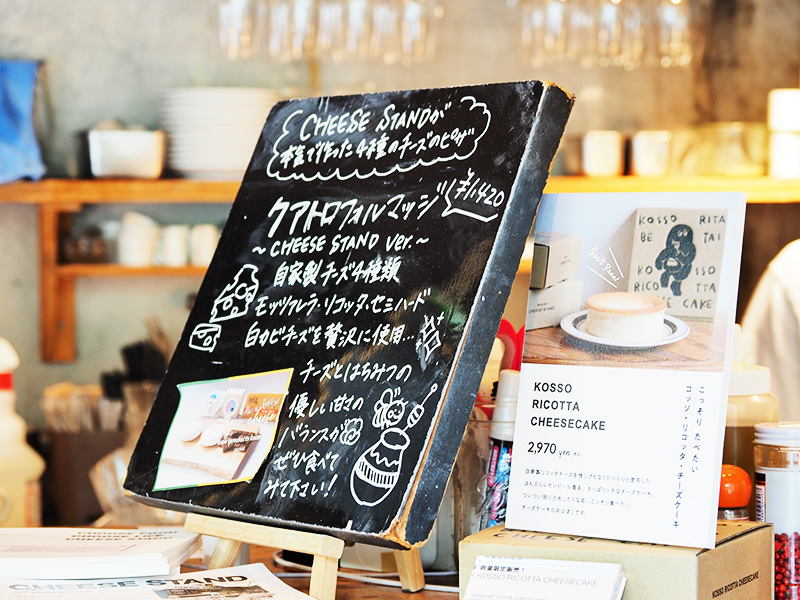 CHEESE STANDが
本気で作った4種のチーズのピザ
クアトロフォルマッジ
¥1,420
〜CHEESE STAND ver.〜
自家製チーズ4種類
モッツァレラ・リコッタ・セミハード
白カビチーズを贅沢に使用...
チーズとはちみつの
優しい甘さの
バランスが
ぜひ食べて
みて下さい!
KOSSO RITA
BE TAI
KO SSO
RICOTTA
CAKE
KOSSO
RICOTTA
CHEESECAKE
2,970 yen
こっそりたべたい
コッソ・リコッタ・チーズケーキ
数量限定販売!
KOSSO RICOTTA CHEESECAKE
KOSSO RICOTTA CHEESECAKE
CHEESE STAND